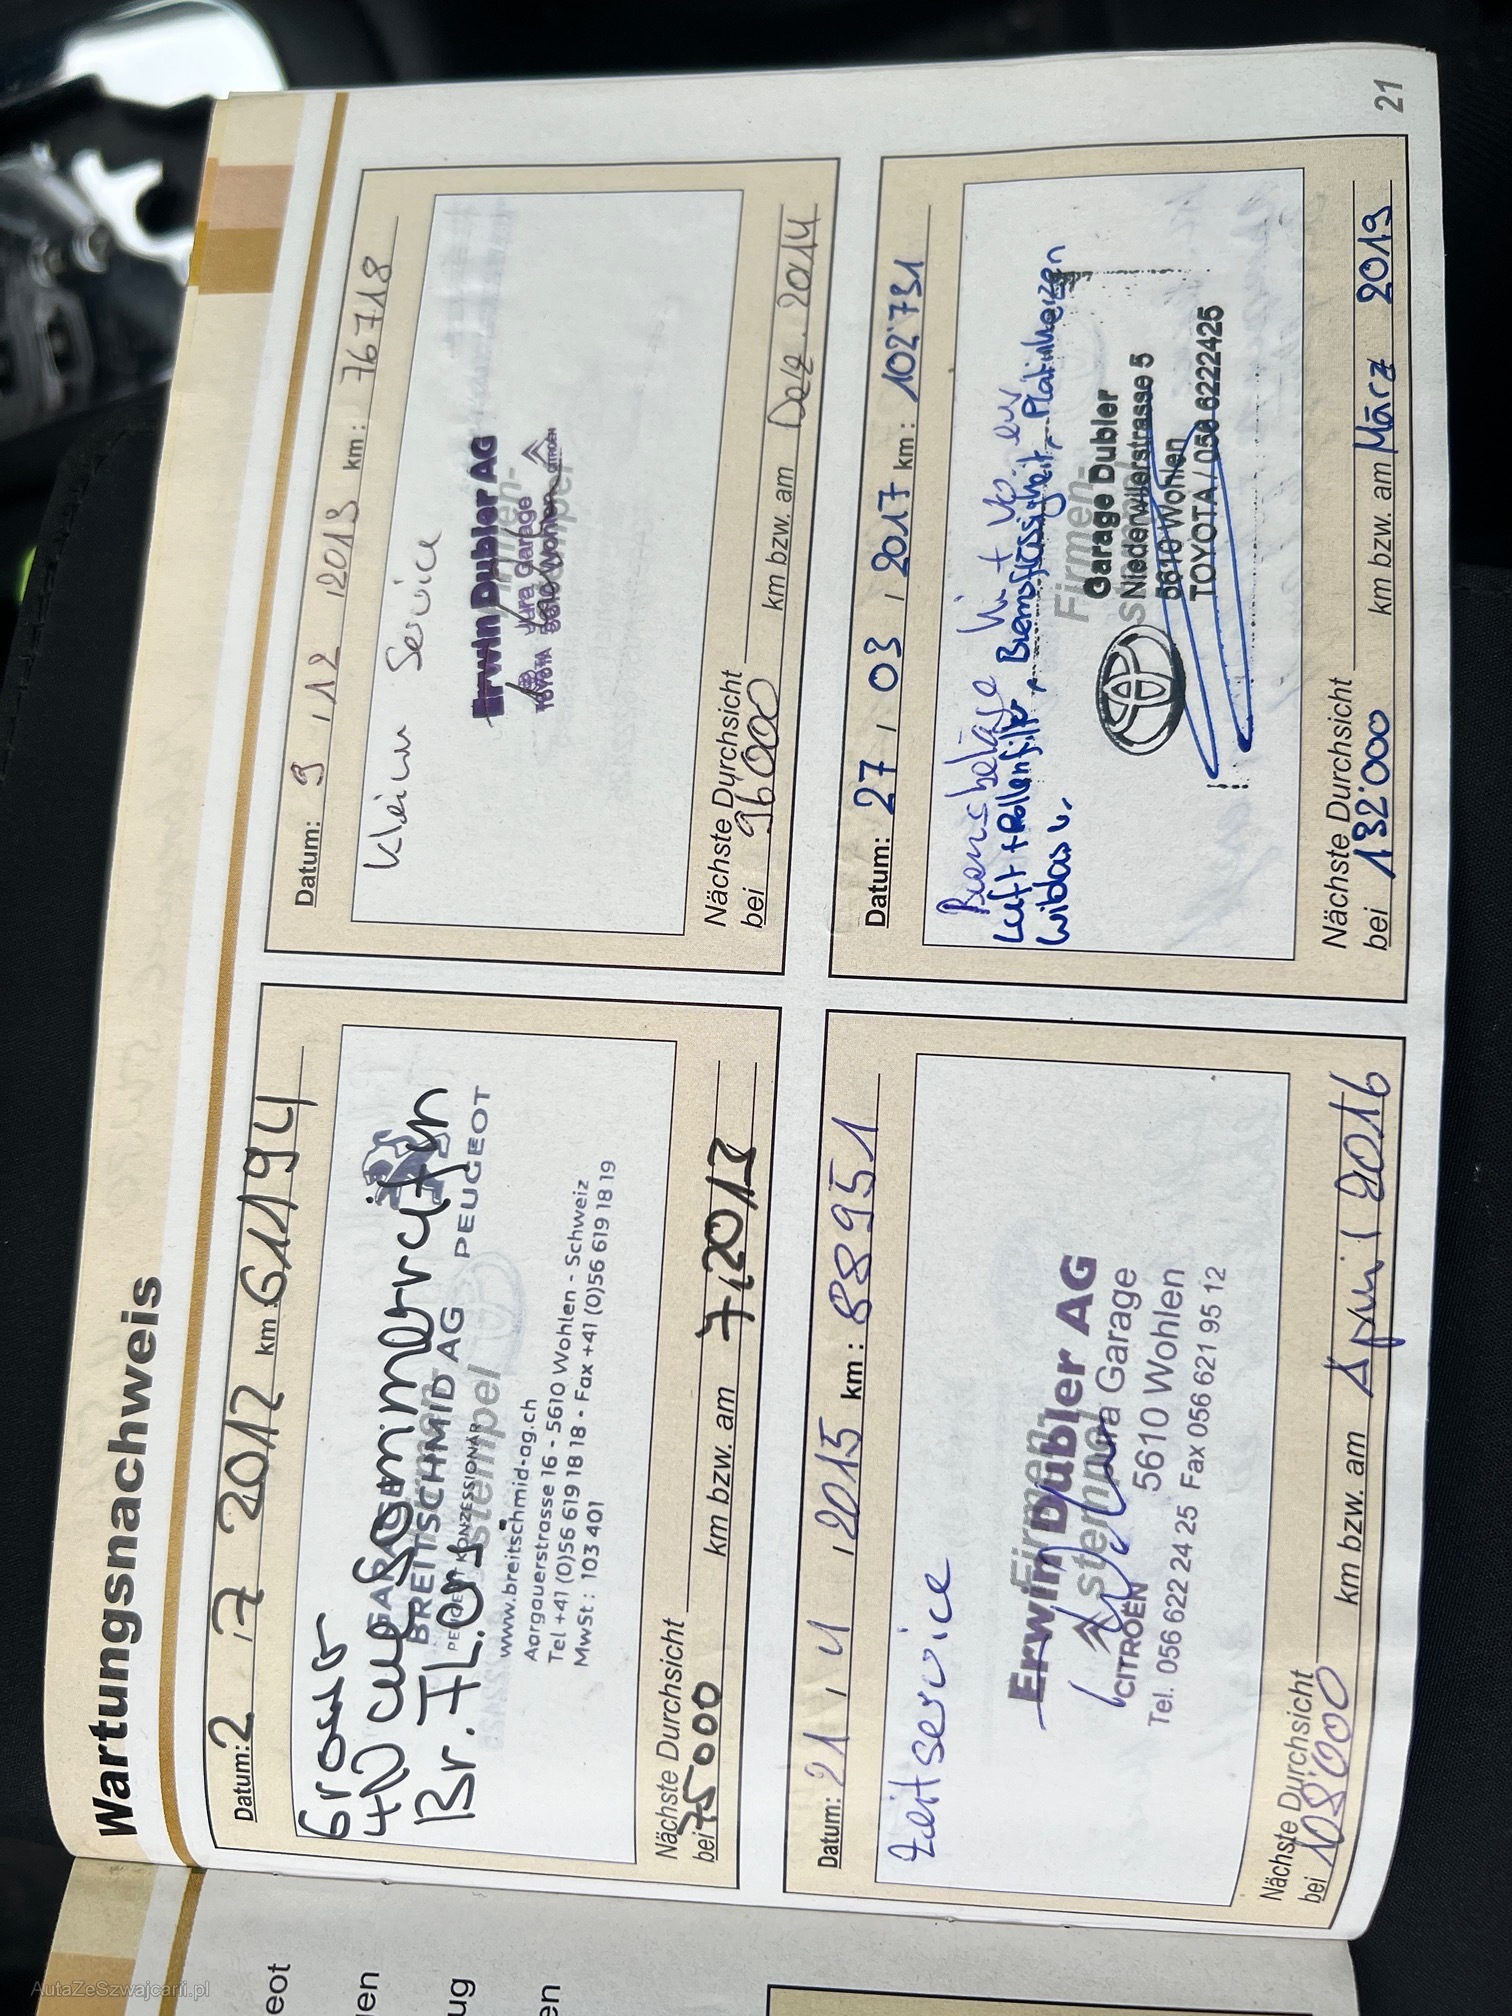 Wartungsnachweis
Datum: 2 . 7 2012 km 61194
Grosser
GARAGE
BREITSCHMID AG
PEUGEOT
KONZESSIONÄR
Br. Fl.
www.breitschmid-ag.ch
Aargauerstrasse 16 - 5610 Wohlen - Schweiz
Tel +41 (0)56 619 18 18 - Fax +41 (0)56 619 18 19
MwSt : 103 401
Nächste Durchsicht
bei 75000 km bzw. am 7.2013
Datum: 9 . 12 . 2013 km : 76718
Klein Service
Firmen-
stempel
Erwin Dubler AG
Jura Garage
TOYOTA 5610 Wohlen CITROËN
Nächste Durchsicht
bei 96000 km bzw. am Dez. 2014
Datum: 21 . 4 . 2015 km : 88951
Zeitservice
Firmen-
stempel
Erwin Dubler AG
Jura Garage
CITROËN 5610 Wohlen
Tel. 056 622 24 25 Fax 056 621 95 12
Nächste Durchsicht
bei 108'000 km bzw. am April 2016
Datum: 27 . 03 . 2017 km : 102'731
Bremsbeläge hi + vo
Luft + Pollenfilter, Bremsflüssigkeit,
Firmen-
Garage Dubler
Niederwilerstrasse 5
5610 Wohlen
TOYOTA / 056 6222425
Nächste Durchsicht
bei 132'000 km bzw. am März 2019
21
eot
en
ug
en
AutaZeSzwajcarii.pl